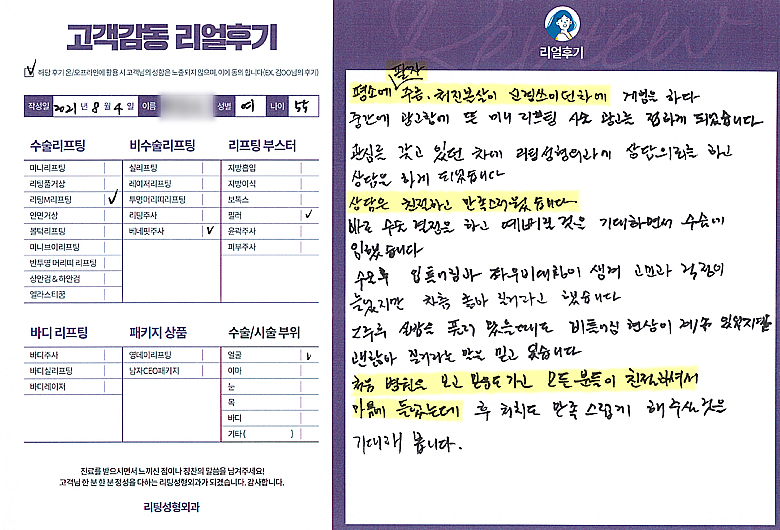 고객감동 리얼후기
해당 후기 온/오프라인에 활용 시 고객님의 성함은 노출되지 않으며, 이에 동의 합니다(EX. 김OO님의 후기)
작성일 2021년 8월 4일 이름 성별 여 나이 55
수술리프팅
미니리프팅
리팅품거상
리팅M리프팅
안면거상
볼턱리프팅
미니브이리프팅
반투명 머리띠 리프팅
상안검 & 하안검
엘라스티꿈
비수술리프팅
실리프팅
레이저리프팅
투명머리띠리프팅
리팅주사
베네핏주사
리프팅 부스터
지방흡입
지방이식
보톡스
필러
윤곽주사
피부주사
바디 리프팅
바디주사
바디실리프팅
바디레이저
패키지 상품
영데이리프팅
남자CEO패키지
수술/시술 부위
얼굴
이마
눈
목
바디
기타( )
진료를 받으시면서 느끼신 점이나 칭찬의 말씀을 남겨주세요!
고객님 한 분 한 분 정성을 다하는 리팅성형외과가 되겠습니다. 감사합니다.
리팅성형외과
Review
리얼후기
팔자
평소에 주름, 처진볼살이 신경쓰이던차에 게임을 하다
중간에 광고창에 뜬 미니 리프팅 시술 광고는 접하게 되었습니다
관심을 갖고 있던 차에 리팅성형외과에 상담의뢰를 하고
상담을 하게 되었습니다
상담은 친절하고 만족스러웠습니다
바로 수술 결정을 하고 예뻐질 것은 기대하면서 수술에
임했습니다
수술후 입 비대칭이 생겨 고민과 걱정이
들었지만 차츰 좋아 질거라고 했습니다
2주후 실밥을 풀지 않았을때도 비틀어짐 현상이 계속 있었지만
괜찮아 질거라는 말은 믿고 있습니다
처음 병원은 보고 모든 분들이 친절하셔서
마음에 들었는데 후 처치도 만족 스럽게 해 주실 것은
기대해 봅니다.